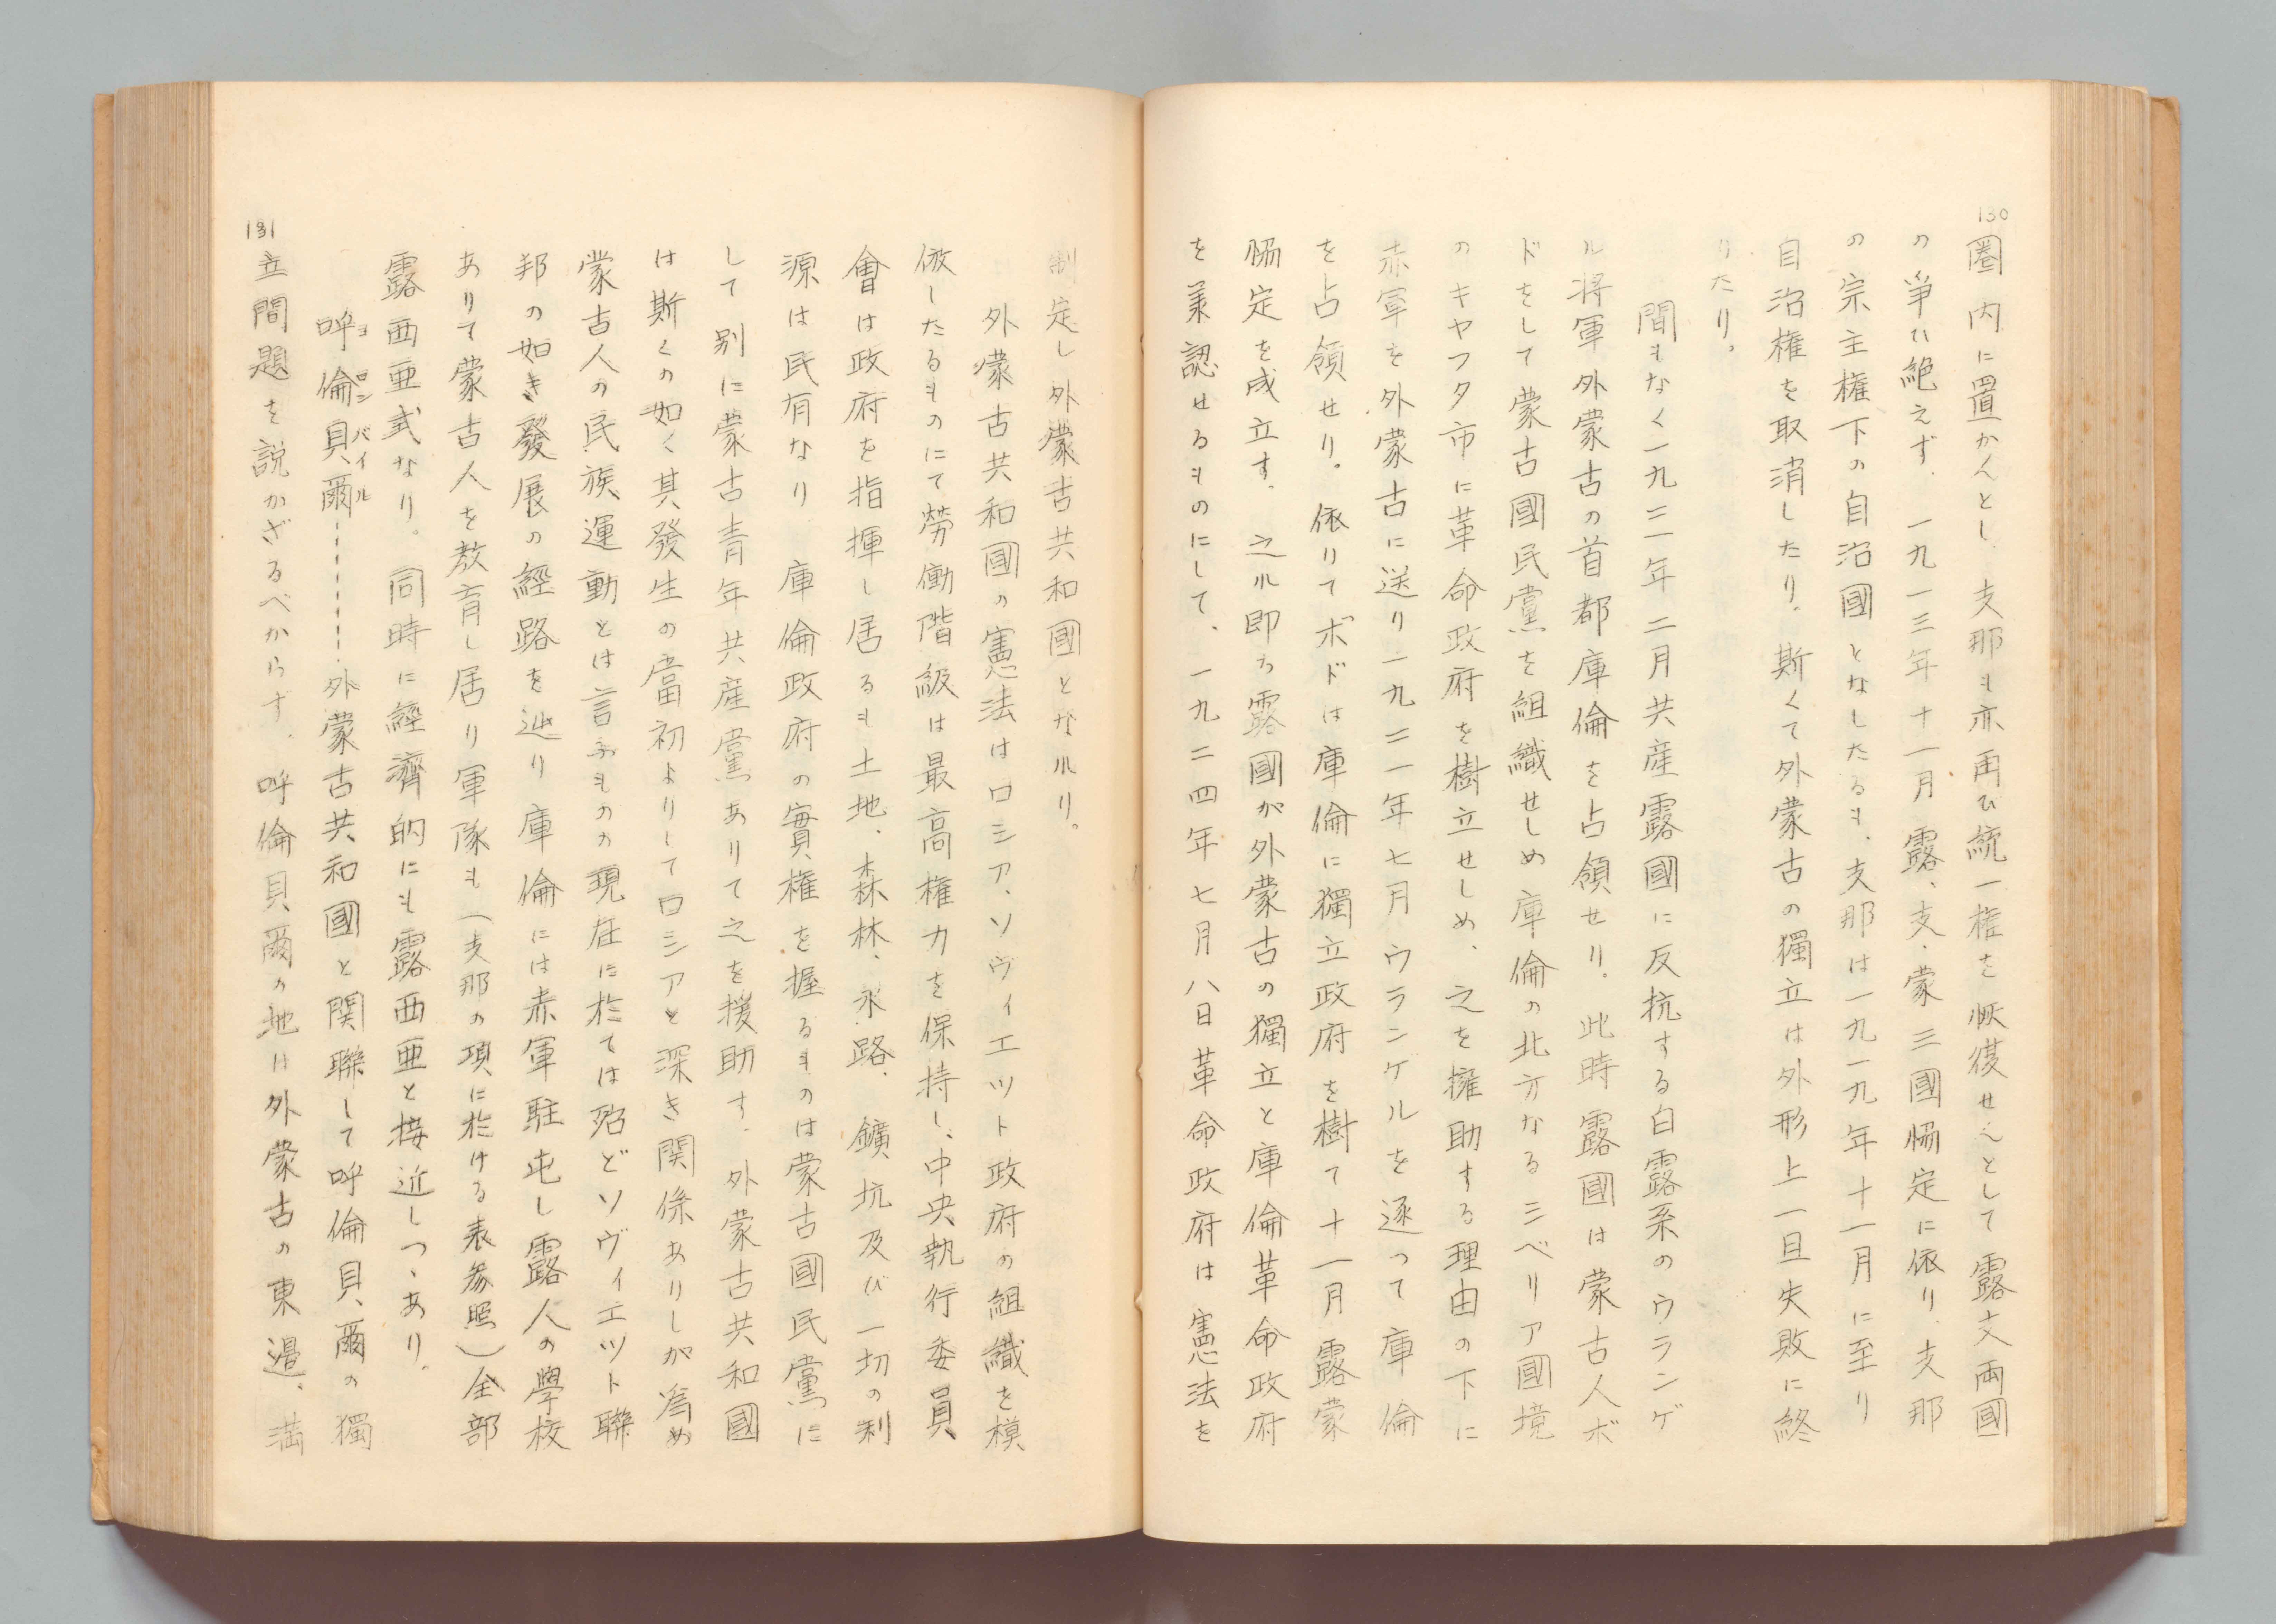 130
圏内に置かんとし支那も亦再び統一権を恢復せんとして露支両國
の争ひ絶えず、一九一三年十一月露、支、蒙三國協定に依り、支那
の宗主権下の自治國となしたるも、支那は一九一九年十一月に至り
自治権を取消したり。斯くて外蒙古の獨立は外形上一旦失敗に終
りたり。
間もなく一九二一年二月共産露國に反抗する白露系のウランゲ
ル将軍外蒙古の首都庫倫を占領せり。此時露國は蒙古人ボ
ドをして蒙古國民黨を組織せしめ庫倫の北方なるシベリア國境
のキヤフタ市に革命政府を樹立せしめ、之を擁助する理由の下に
赤軍を外蒙古に送り一九二一年七月ウランゲルを逐って庫倫
を占領せり。依りてボドは庫倫に獨立政府を樹て十一月露蒙
協定を成立す、之レ即ち露國が外蒙古の獨立と庫倫革命政府
を承認せるものにして、一九二四年七月八日革命政府は憲法を
制定し外蒙古共和國となれり。
外蒙古共和國の憲法はロシア、ソヴィエツト政府の組織を模
倣したるものにて勞働階級は最高権力を保持し、中央執行委員
會は政府を指揮し居るも土地、森林、水路、鑛坑及び一切の利
源は民有なり 庫倫政府の實権を握るものは蒙古國民黨に
して別に蒙古青年共産黨ありて之を援助す、外蒙古共和國
は斯くの如く其發生の當初よりしてロシアと深き関係ありしが為め
蒙古人の民族運動とは言ふものの現在に於ては殆どソヴィエツト聯
邦の如き發展の經路を辿り庫倫には赤軍駐屯し露人の學校
ありて蒙古人を教育し居り軍隊も(支那の項に於ける表参照)全部
露西亜式なり。同時に經濟的にも露西亜と接近しつゝあり。
呼倫貝爾--------外蒙古共和國と関聯して呼倫貝爾の獨
ヨロンバイル
131
立問題を説かざるべからず、呼倫貝爾の地は外蒙古の東邊、満